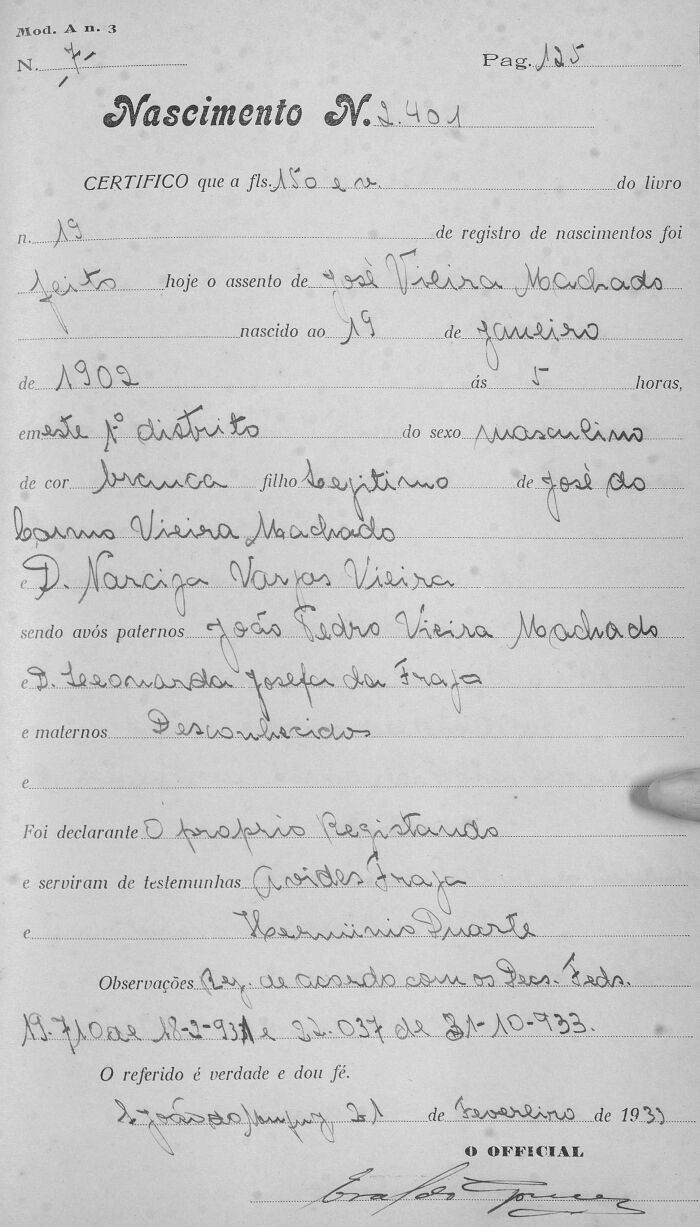 Mod. A n. 3
N. 7 Pag. 125
Nascimento N. 2.401
CERTIFICO que a fls. 150 e v. do livro
n. 19 de registro de nascimentos foi
feito hoje o assento de José Vieira Machado
nascido ao 19 de janeiro
de 1902 ás 5 horas,
em este 1º distrito do sexo masculino
de cor branca filho Legitimo de José do
Carmo Vieira Machado
e D. Narciza Vargas Vieira
sendo avós paternos João Pedro Vieira Machado
e D. Leonarda Josefa da Fraga
e maternos Desconhecidos
e
Foi declarante O proprio Registando
e serviram de testemunhas Avides Fraga
e Herminio Duarte
Observações Reg. de acordo com os Decs. Feds.
19.710 de 18-2-931 e 22.037 de 31-10-933.
O referido é verdade e dou fé.
S. João do 21 de Fevereiro de 193
O OFFICIAL